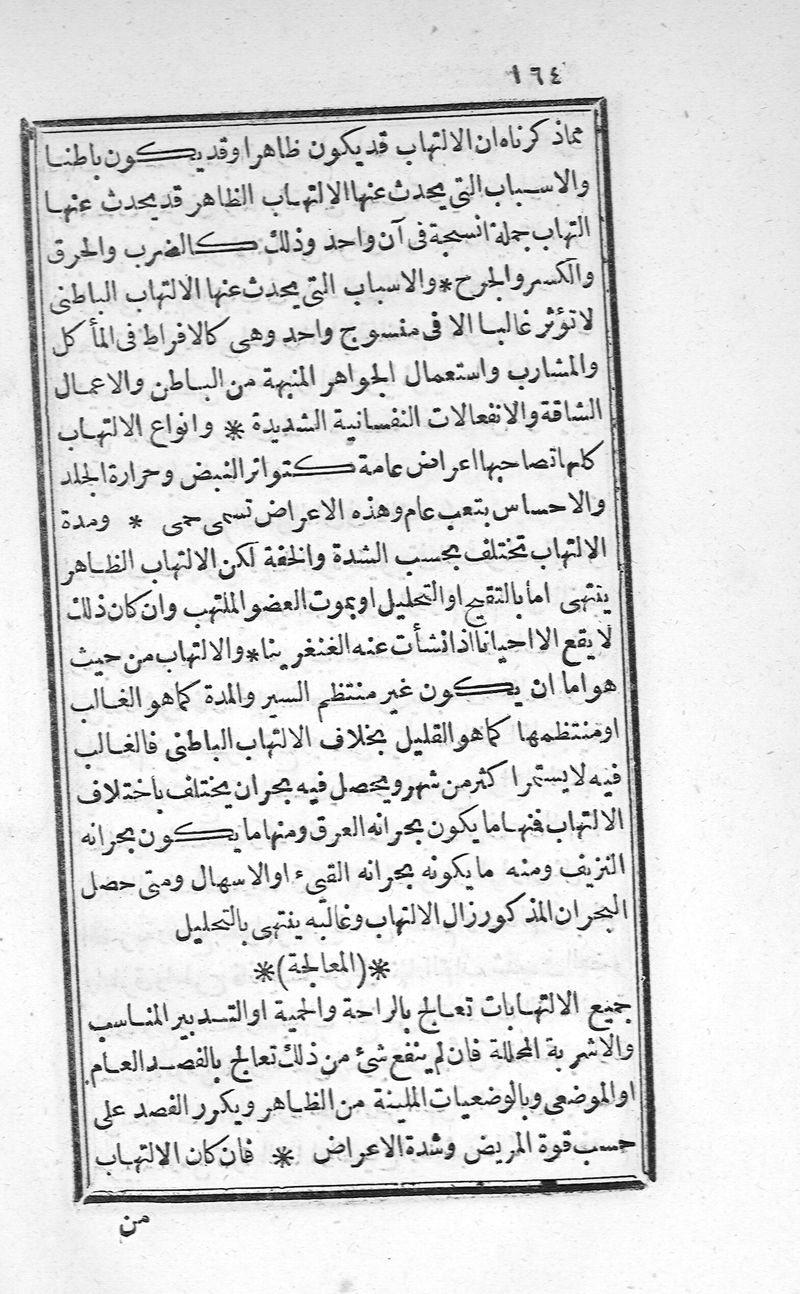 ١٦٤
مماذكرناه ان الالتهاب قد يكون ظاهرا وقد يكون باطنا
والاسباب التى يحدث عنها الالتهاب الظاهر قد يحدث عنها
التهاب جملة انسجة فى آن واحد وذلك كالضرب والحرق
والكسر والجرح * والاسباب التى يحدث عنها الالتهاب الباطنى
لا تؤثر غالبا الا فى منسوج واحد وهى كالافراط فى المأكل
والمشارب واستعمال الجواهر المنبهة من الباطن والاعمال
الشاقة والانفعالات النفسانية الشديدة * وانواع الالتهاب
كلها تصاحبها اعراض عامة كتواتر النبض وحرارة الجلد
والاحساس بتعب عام وهذه الاعراض تسمى حمى * ومدة
الالتهاب تختلف بحسب الشدة والخفة لكن الالتهاب الظاهر
ينتهى اما بالتقيح او التحليل او بموت العضو الملتهب وان كان ذلك
لا يقع الا احيانا اذا نشأت عنه الغنغرينا * والالتهاب من حيث
هو اما ان يكون غير منتظم السير والمدة كما هو الغالب
او منتظمها كما هو القليل بخلاف الالتهاب الباطنى فالغالب
فيه لا يستمر اكثر من شهر ويحصل فيه بحران يختلف باختلاف
الالتهاب فمنها ما يكون بحرانه العرق ومنها ما يكون بحرانه
النزيف ومنه ما يكونه بحرانه القيء او الاسهال ومتى حصل
البحران المذكور زال الالتهاب وغالبه ينتهى بالتحليل
*(المعالجة)*
جميع الالتهابات تعالج بالراحة والحمية او التدبير المناسب
والاشربة المحللة فان لم ينفع شئ من ذلك تعالج بالفصد العام
او الموضعى وبالوضعيات الملينة من الظاهر ويكرر الفصد على
حسب قوة المريض وشدة الاعراض * فان كان الالتهاب
من